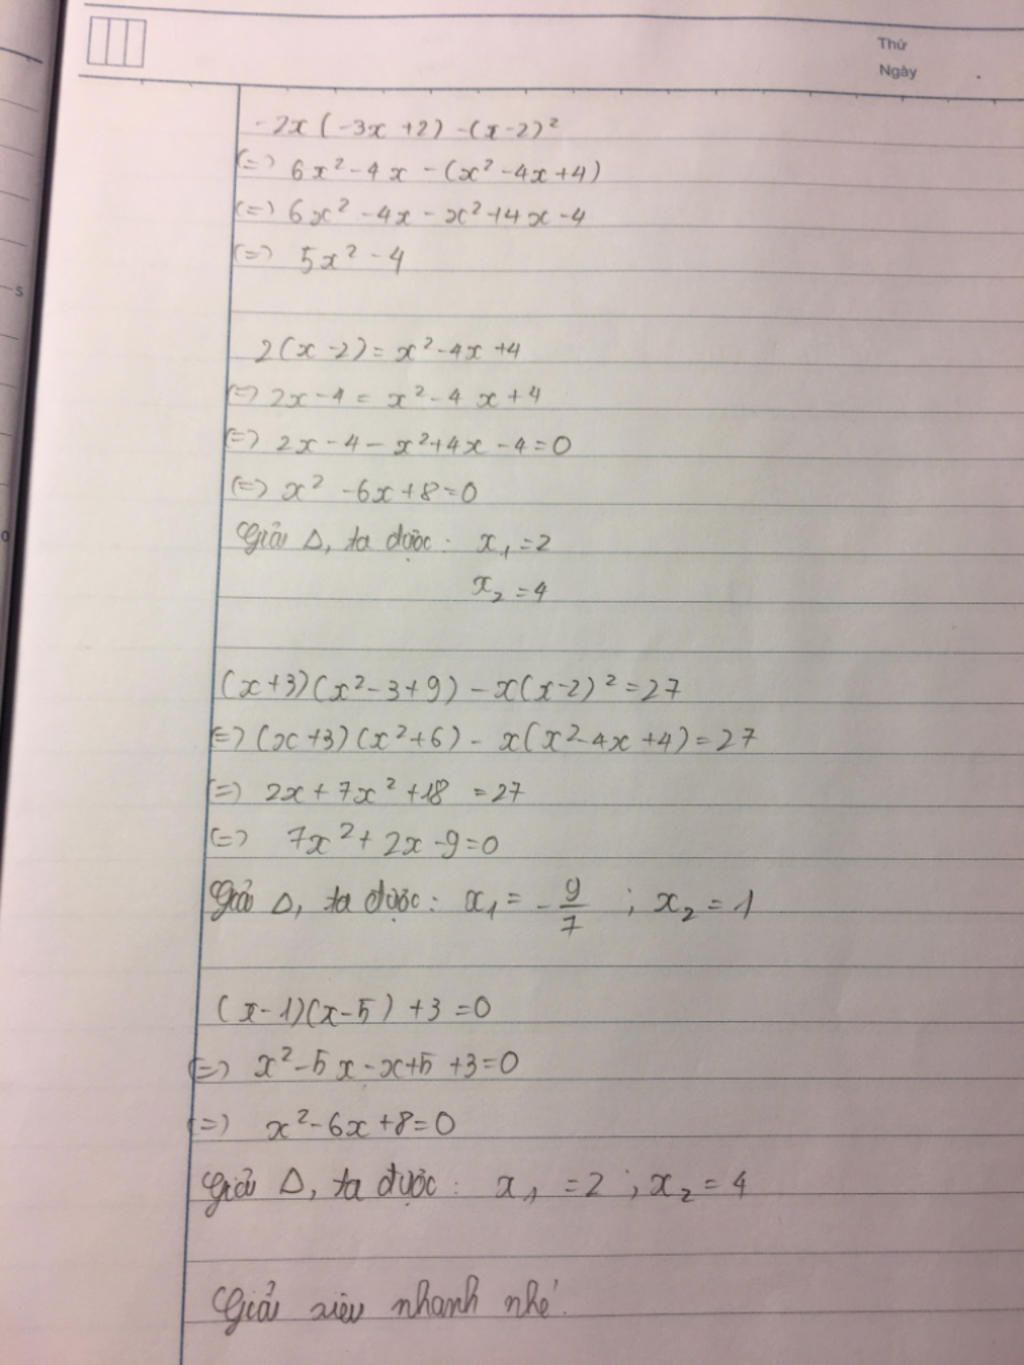 Thứ
Ngày
-2x(-3x+2)-(x-2)²
(=) 6x²-4x-(x²-4x+4)
(=) 6x²-4x-x²+4x-4
(=) 5x²-4
2(x-2)=x²-4x+4
(=) 2x-4=x²-4x+4
(=) 2x-4-x²+4x-4=0
(=) x²-6x+8=0
Giải Δ, ta được: x₁=2
x₂=4
(x+3)(x²-3+9)-x(x-2)²=27
(=) (x+3)(x²+6)-x(x²-4x+4)=27
(=) 2x+7x²+18=27
(=) 7x²+2x-9=0
Giải Δ, ta được: x₁=-9/7 ; x₂=1
(x-1)(x-5)+3=0
(=) x²-5x-x+5+3=0
(=) x²-6x+8=0
Giải Δ, ta được: x₁=2 ; x₂=4
Giải siêu nhanh nhé.